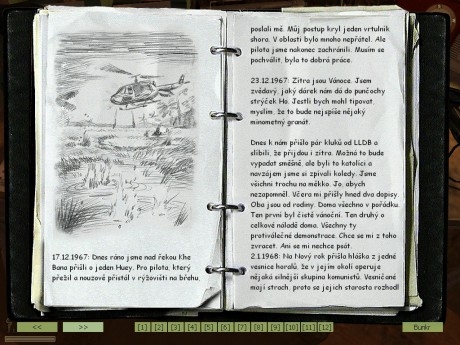 17.12.1967: Dnes ráno jsme nad řekou Khe
Bana přišli o jeden Huey. Pro pilota, který
přežil a nouzově přistál v rýžovišti na břehu,
poslali mě. Můj postup kryl jeden vrtulník
shora. V oblasti bylo mnoho nepřátel. Ale
pilota jsme nakonec zachránili. Musím se
pochválit, byla to dobrá práce.
23.12.1967: Zítra jsou Vánoce. Jsem
zvědavý, jaký dárek nám dá do punčochy
strýček Ho. Jestli bych mohl tipovat,
myslím, že to bude nejspíše nějaký
minometný granát.
Dnes k nám přišlo pár kluků od LLDB a
slíbili, že přijdou i zítra. Možná to bude
vypadat směšně, ale byli to katolíci a
navzájem jsme si zpívali koledy. Jsme
všichni trochu na měkko. Jo, abych
nezapomněl. Včera mi přišly hned dva dopisy.
Oba jsou od rodiny. Doma všechno v pořádku.
Ten první byl čistě vánoční. Ten druhý o
celkové náladě doma. Všechny ty
protiválečné demonstrace. Chce se mi z toho
zvracet. Ani se mi nechce psát.
2.1.1968: Na Nový rok přišla hláška z jedné
vesnice horalů, že v jejím okolí operuje
nějaká silnější skupina komunistů. Vesničané
mají strach, proto se jejich starosta rozhodl
<< >> [1] [2] [3] [4] [5] [6] [7] [8] [9] [10] [11] [12] Bunkr